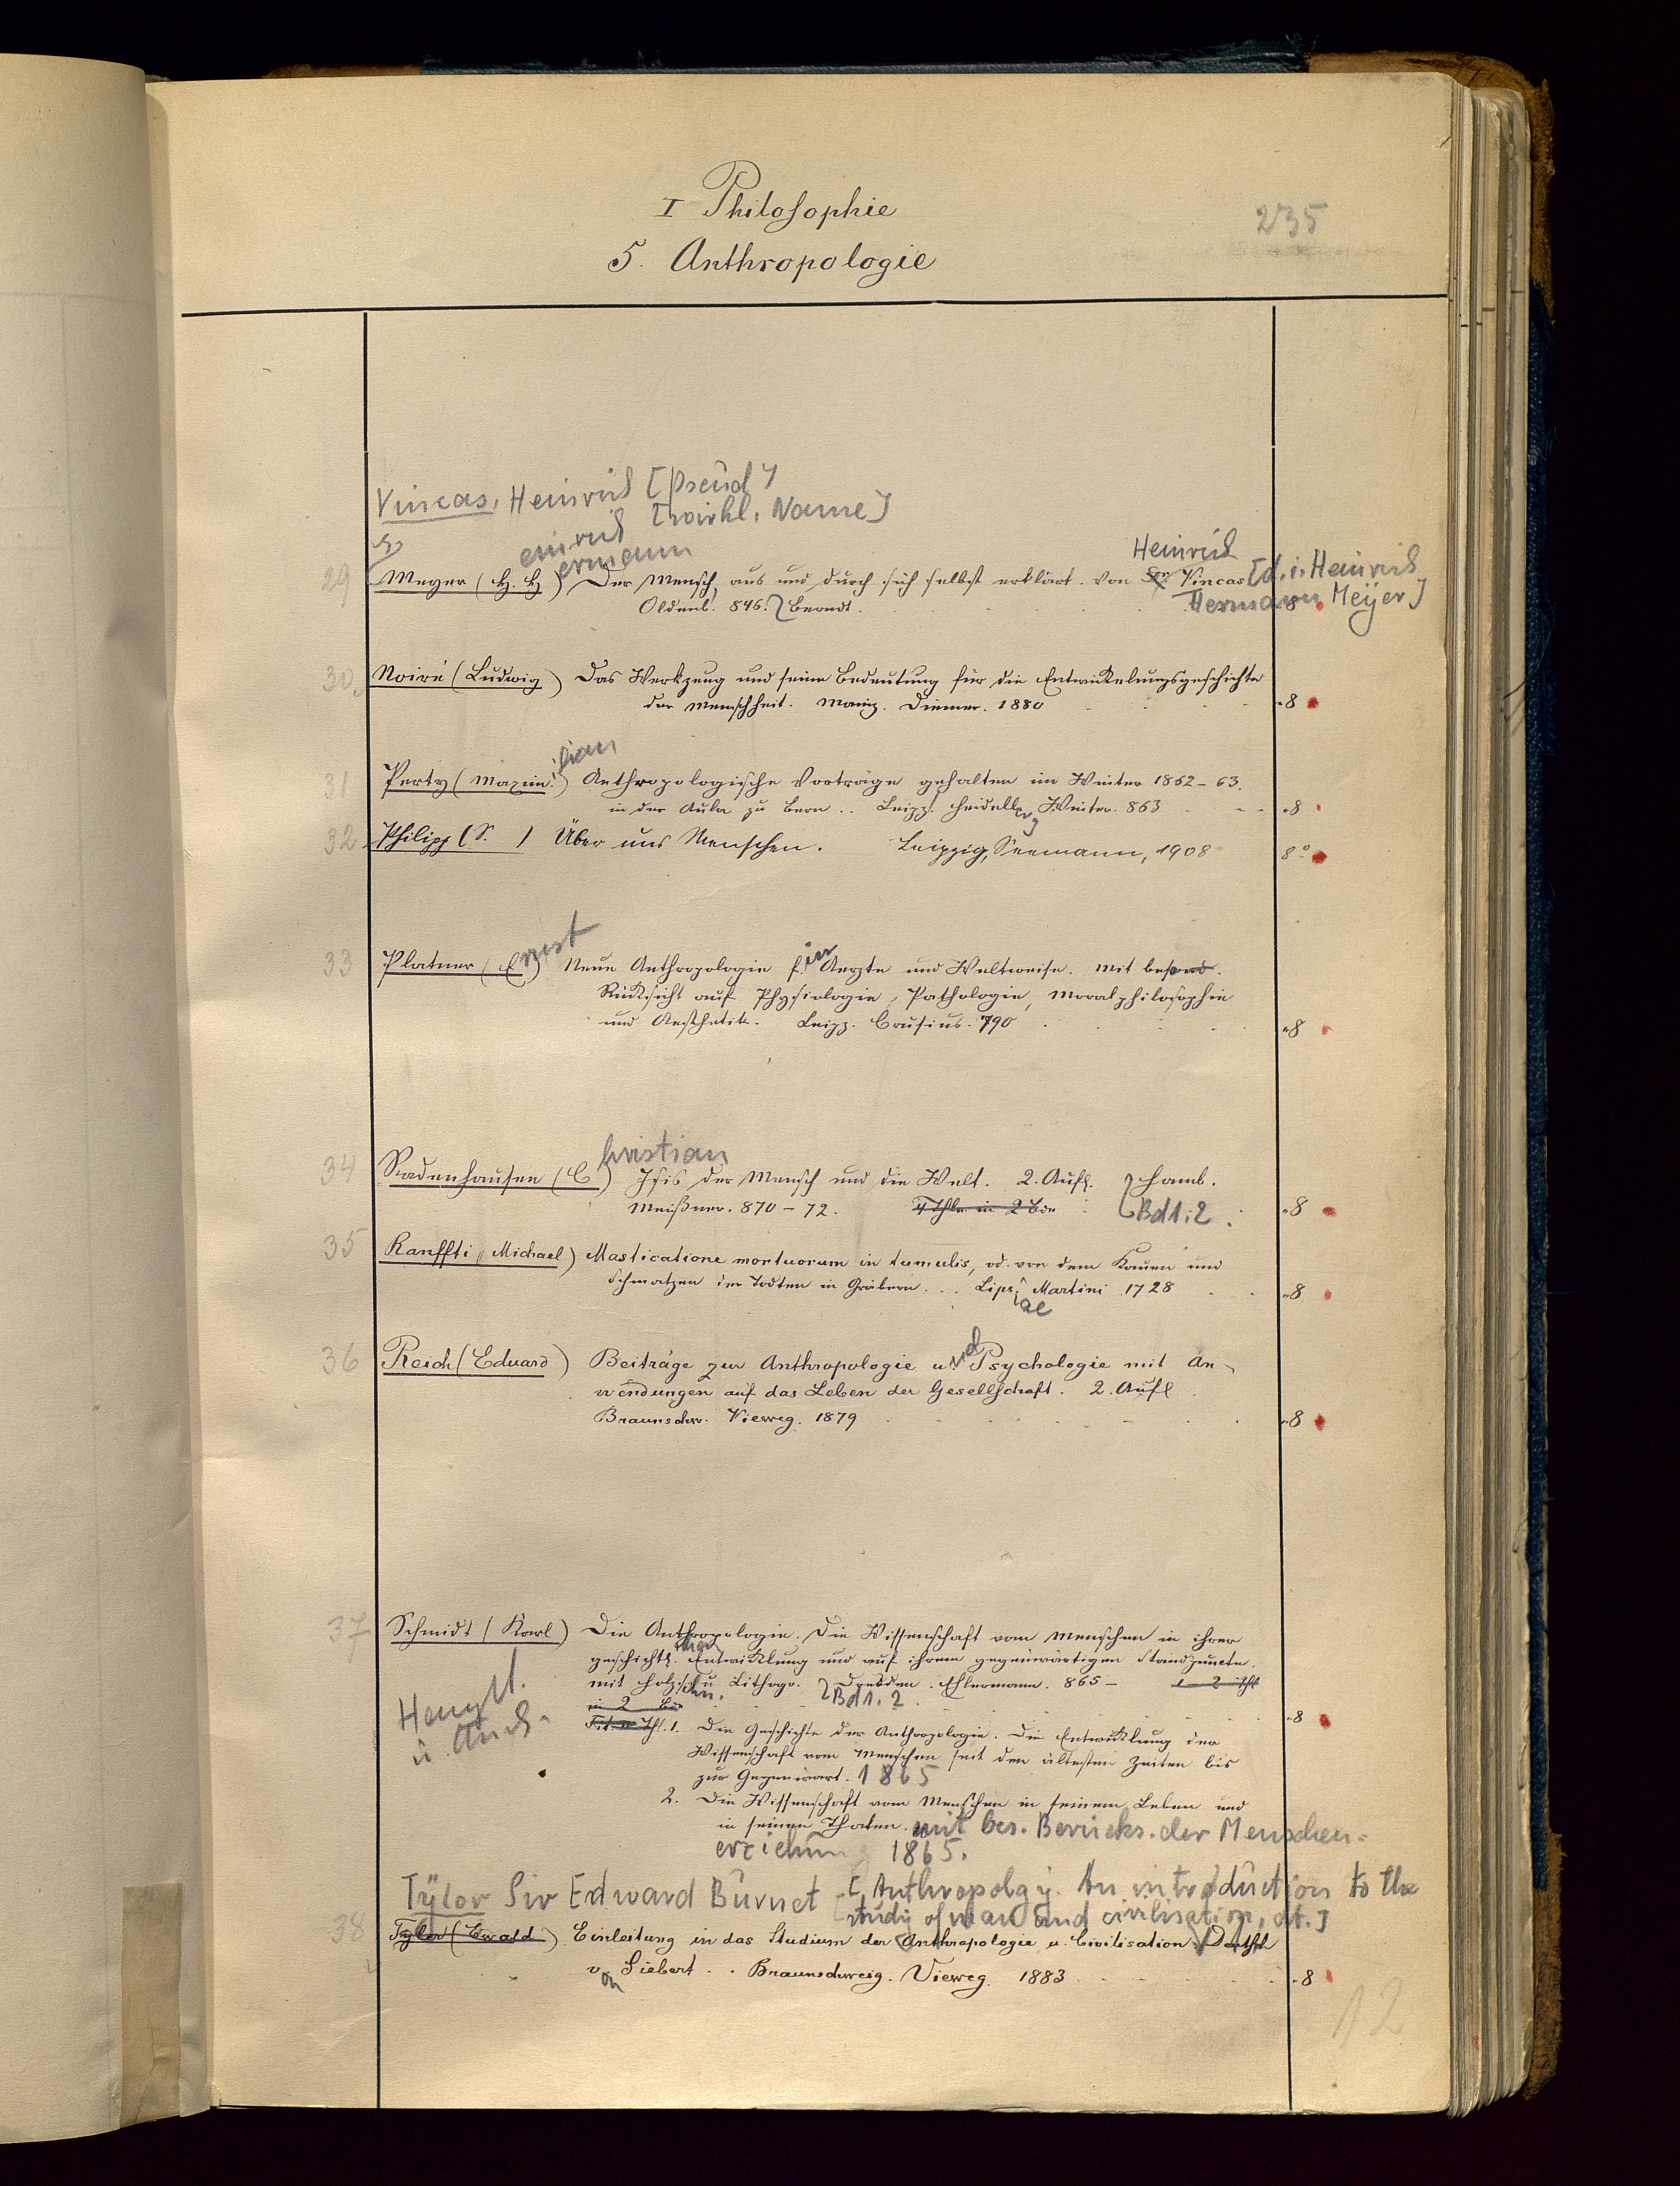 I Philosophie
235
5. Anthropologie
Vincas, Heinrich [Pseud]
[wirkl. Name]
einrich
ermann
Heinrich
29 Meyer (H. H) Der Mensch, aus und durch sich selbst erklärt. von Dr. Vincas [d. i. Heinrich
Oldenb. 846. Berndt. Hermann Meyer] 8
30. Noiré (Ludwig) Das Werkzeug und seine Bedeutung für die Entwickelungsgeschichte
der Menschheit. Mainz. Diemer. 1880 8
ilian
31 Perty (Maxim.) Anthropologische Vorträge gehalten im Winter 1862-63.
in der Aula zu Bern .. Leipz. Heidelberg Winter. 863 8
32 Philipp (S. ) Über uns Menschen. Leipzig, Seemann, 1908 8°
33 Platner (Ernst) Neue Anthropologie für Aerzte und Weltweise. Mit besond.
Rücksicht auf Physiologie, Pathologie, Moralphilosophie
und Aesthetik. Leipz. Crusius. 790 8
34 Radenhausen (Christian) Isis der Mensch und die Welt. 2. Aufl. Hamb.
Meißner. 870-72. 4 Thle in 2 Bde Bd 1.2. 8
35 Ranffti (Michael) Masticatione mortuorum in tumulis, od. von dem Kauen und
Schmatzen der Todten in Gräbern ... Lipsiae Martini 1728 8
36 Reich (Eduard) Beiträge zur Anthropologie und Psychologie mit An-
wendungen auf das Leben der Gesellschaft. 2. Aufl.
Braunschw. Vieweg. 1879 8
37 Schmidt (Karl) Die Anthropologie. Die Wissenschaft vom Menschen in ihrer
geschichtlichen Entwicklung und auf ihrem gegenwärtigen Standpuncte.
mit Holzschn. u Lithogr. Dresden. Ehlermann. 865 - 1-2 Thl
in 2 Bde Bd 1. 2. 8
Thl. 1. Die Geschichte der Anthropologie. Die Entwicklung der
Wissenschaft vom Menschen seit den ältesten Zeiten bis
zur Gegenwart. 1865
2. Die Wissenschaft vom Menschen in seinem Leben und
in seinen Thaten. mit bes. Berücks. der Menschen-
erziehung 1865.
Tylor Sir Edward Burnet [Anthropology. An introduction to the
study of man and civilisation, dt.]
38 Tylor (Ewald) Einleitung in das Studium der Anthropologie u. Civilisation. Deutsch
von Siebert .. Braunschweig. Vieweg. 1883 8
12